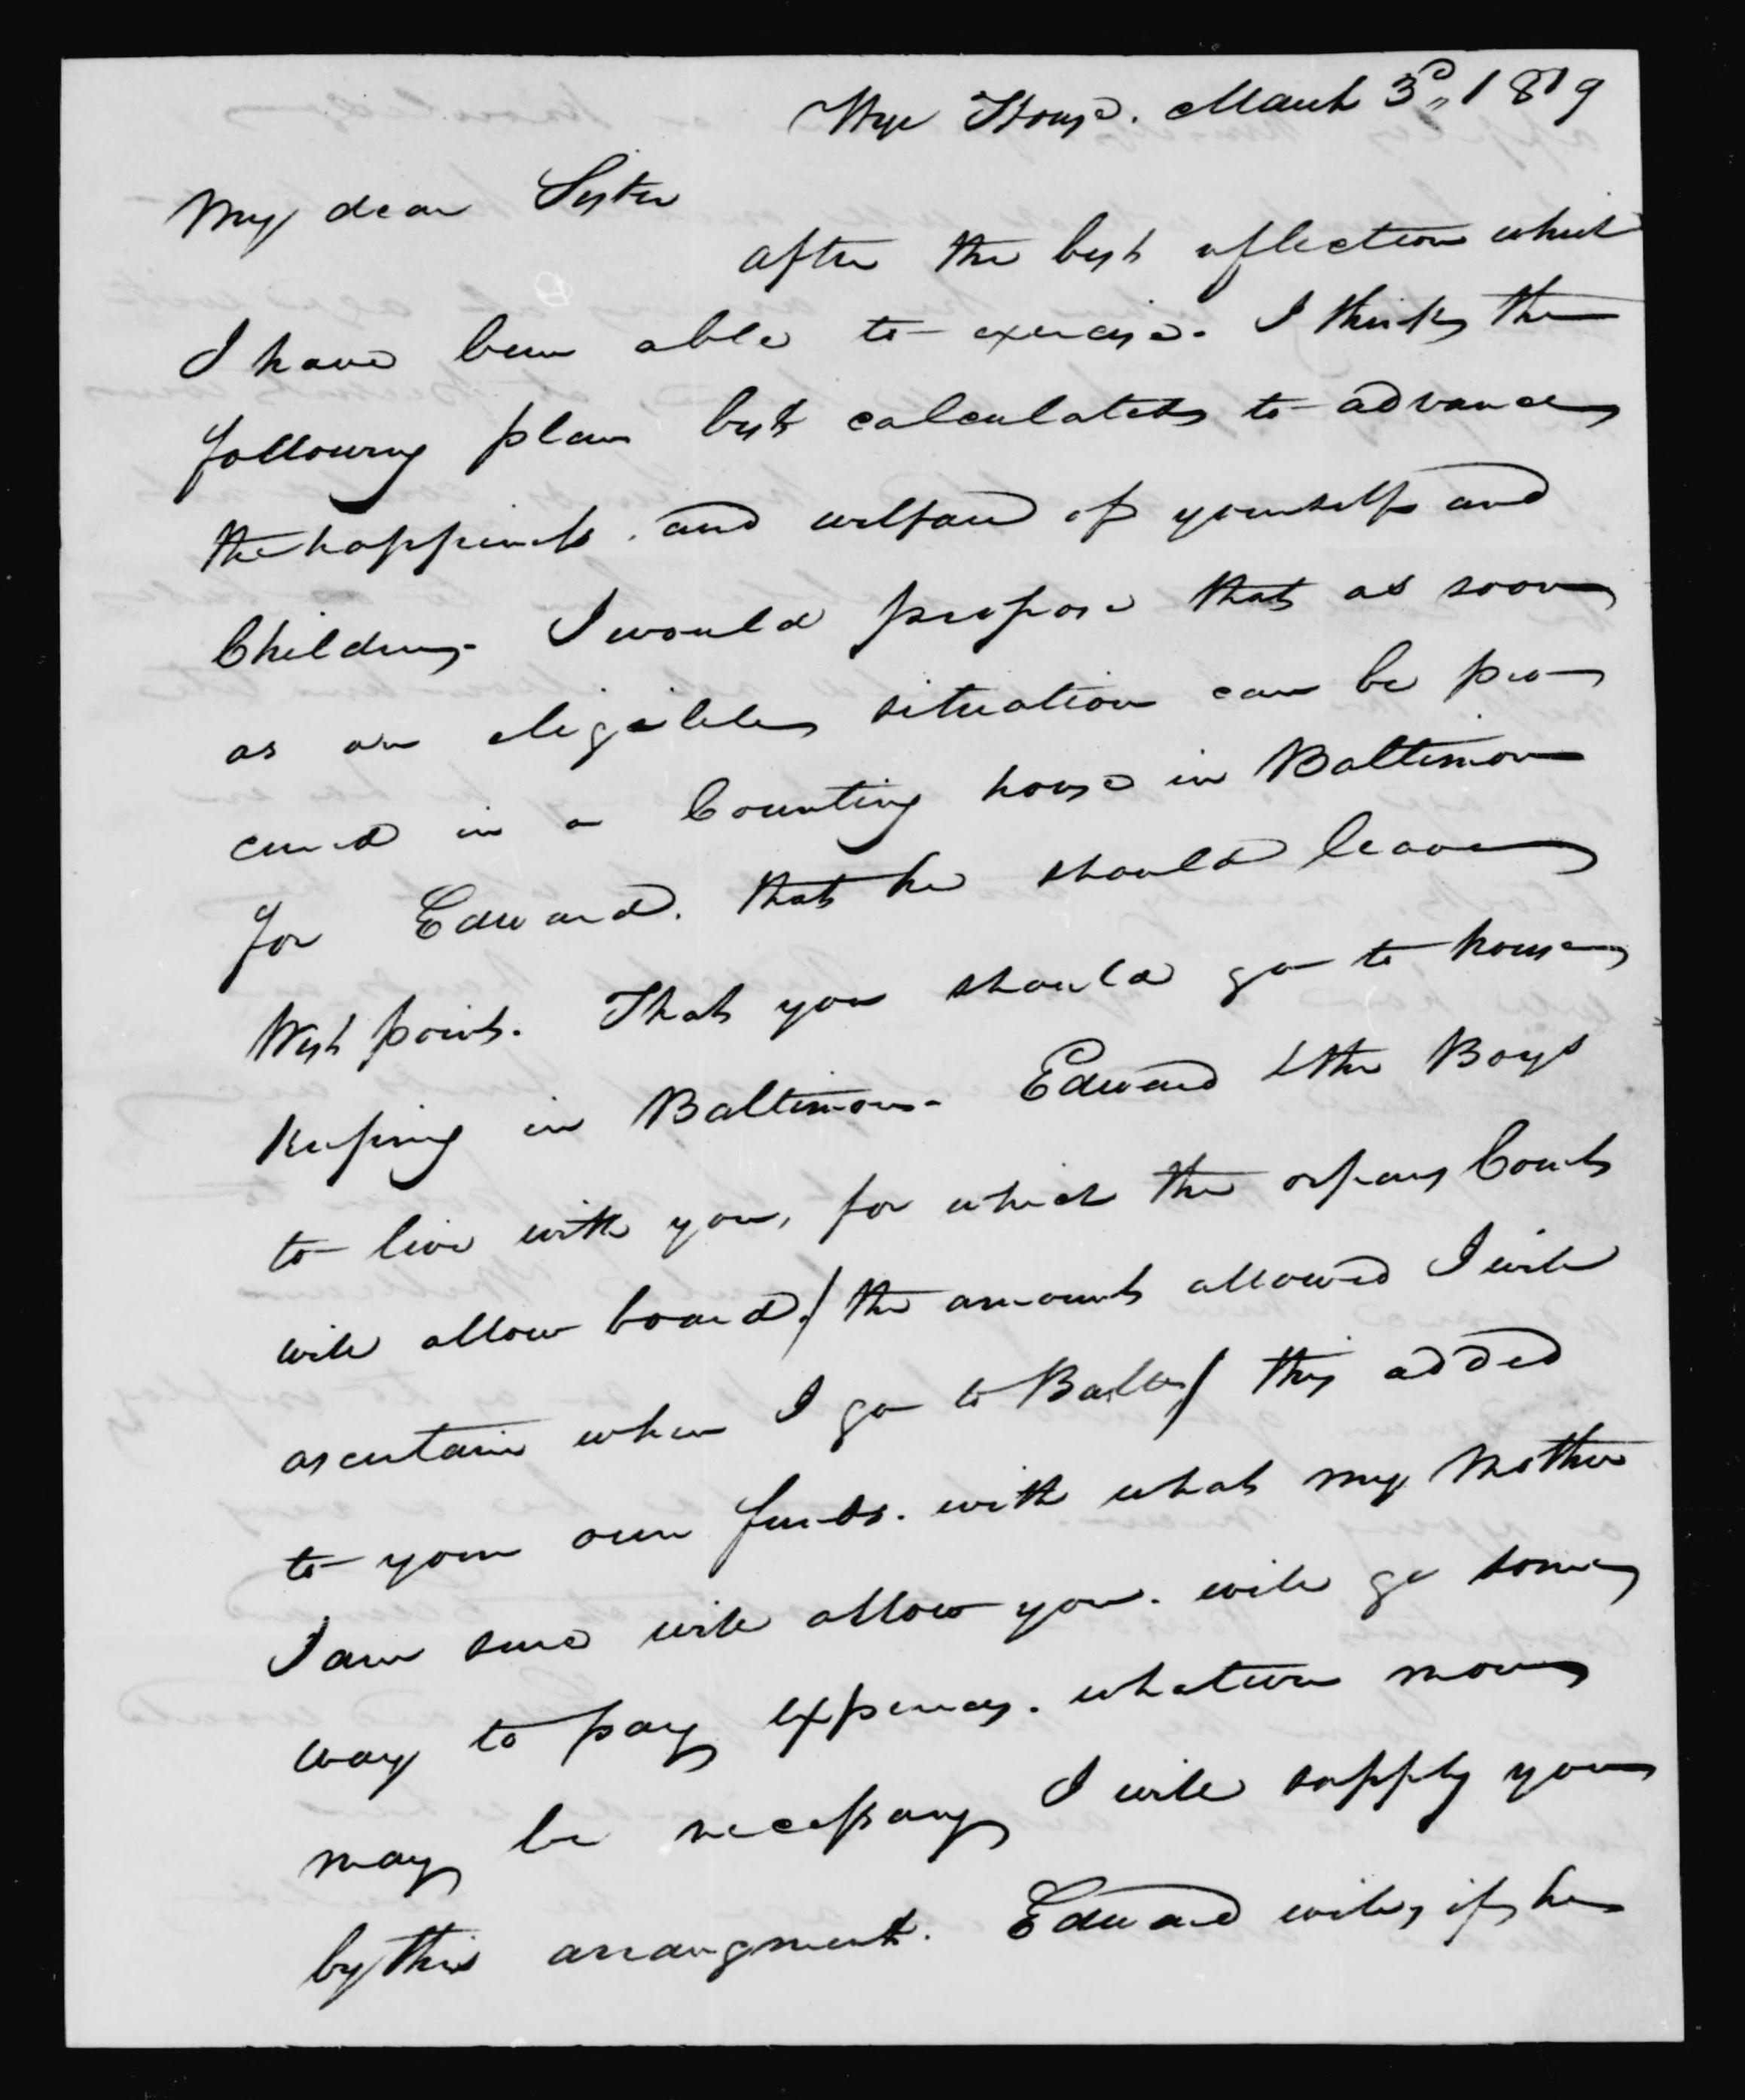 Wye House. March 3d, 1819
My dear Sister
after the best reflection which
I have been able to exercise. I think the
following plan best calculated to advance
the happiness. and welfare of yourself and
Children. I would propose that as soon
as an eligible situation can be pro-
cured in a Counting house in Baltimore
for Edward. that he should leave
West point. That you should go to house
keeping in Baltimore. Edward & the Boys
to live with you, for which the orphans Court
will allow board/ the amount allowed I will
ascertain when I go to Balto/ this added
to your own funds. with what my Mother
I am sure will allow you. will go some
way to pay expences. whatever more
may be necessary I will supply you
by this arrangment. Edward will, if he